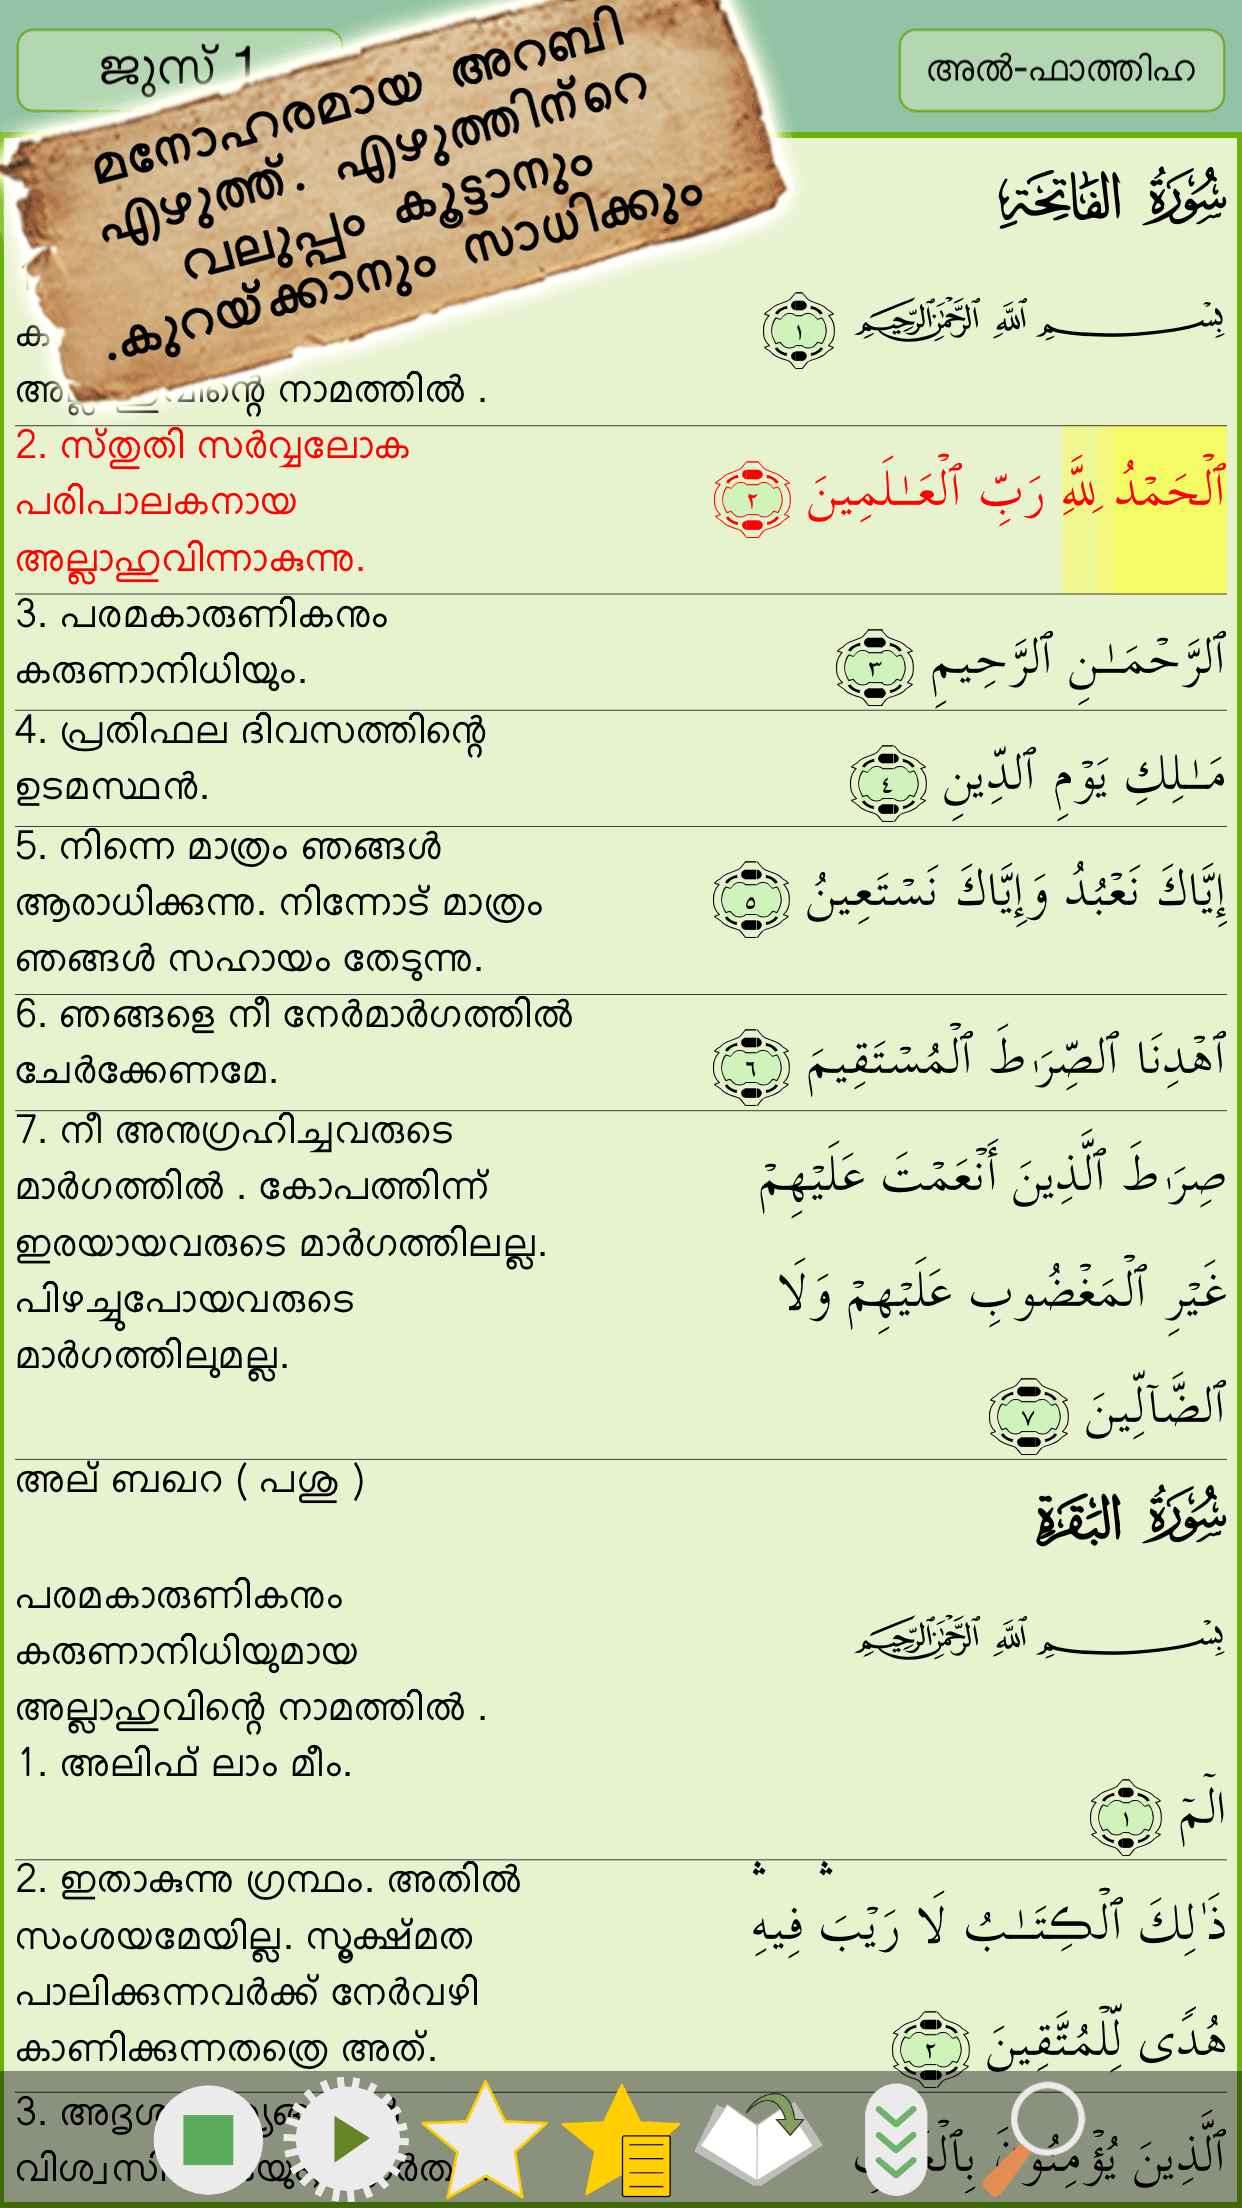 ജുസ് 1
അൽ-ഫാത്തിഹ
മനോഹരമായ അറബി
എഴുത്ത്. എഴുത്തിന്റെ
വലുപ്പം കൂട്ടാനും
.കുറയ്ക്കാനും സാധിക്കും
سُورَةُ الفَاتِحَةِ
بِسْمِ اللَّهِ الرَّحْمَٰنِ الرَّحِيمِ ١
നാമത്തിൽ .
2. സ്തുതി സർവ്വലോക
പരിപാലകനായ
അല്ലാഹുവിന്നാകുന്നു.
ٱلْحَمْدُ لِلَّهِ رَبِّ ٱلْعَـٰلَمِينَ ٢
3. പരമകാരുണികനും
കരുണാനിധിയും.
ٱلرَّحْمَـٰنِ ٱلرَّحِيمِ ٣
4. പ്രതിഫല ദിവസത്തിന്റെ
ഉടമസ്ഥൻ.
مَـٰلِكِ يَوْمِ ٱلدِّينِ ٤
5. നിന്നെ മാത്രം ഞങ്ങൾ
ആരാധിക്കുന്നു. നിന്നോട് മാത്രം
ഞങ്ങൾ സഹായം തേടുന്നു.
إِيَّاكَ نَعْبُدُ وَإِيَّاكَ نَسْتَعِينُ ٥
6. ഞങ്ങളെ നീ നേർമാർഗത്തിൽ
ചേർക്കേണമേ.
ٱهْدِنَا ٱلصِّرَٰطَ ٱلْمُسْتَقِيمَ ٦
7. നീ അനുഗ്രഹിച്ചവരുടെ
മാർഗത്തിൽ . കോപത്തിന്ന്
ഇരയായവരുടെ മാർഗത്തിലല്ല.
പിഴച്ചുപോയവരുടെ
മാർഗത്തിലുമല്ല.
صِرَٰطَ ٱلَّذِينَ أَنْعَمْتَ عَلَيْهِمْ
غَيْرِ ٱلْمَغْضُوبِ عَلَيْهِمْ وَلَا
ٱلضَّآلِّينَ ٧
അല് ബഖറ ( പശു )
سُورَةُ البَقَرَةِ
പരമകാരുണികനും
കരുണാനിധിയുമായ
അല്ലാഹുവിന്റെ നാമത്തിൽ .
بِسْمِ اللَّهِ الرَّحْمَٰنِ الرَّحِيمِ
1. അലിഫ് ലാം മീം.
الٓمٓ ١
2. ഇതാകുന്നു ഗ്രന്ഥം. അതിൽ
സംശയമേയില്ല. സൂക്ഷ്മത
പാലിക്കുന്നവർക്ക് നേർവഴി
കാണിക്കുന്നതത്രെ അത്.
ذَٰلِكَ ٱلْكِتَـٰبُ لَا رَيْبَ ۛ فِيهِ ۛ
هُدًى لِّلْمُتَّقِينَ ٢
3.
ٱلَّذِينَ يُؤْمِنُونَ